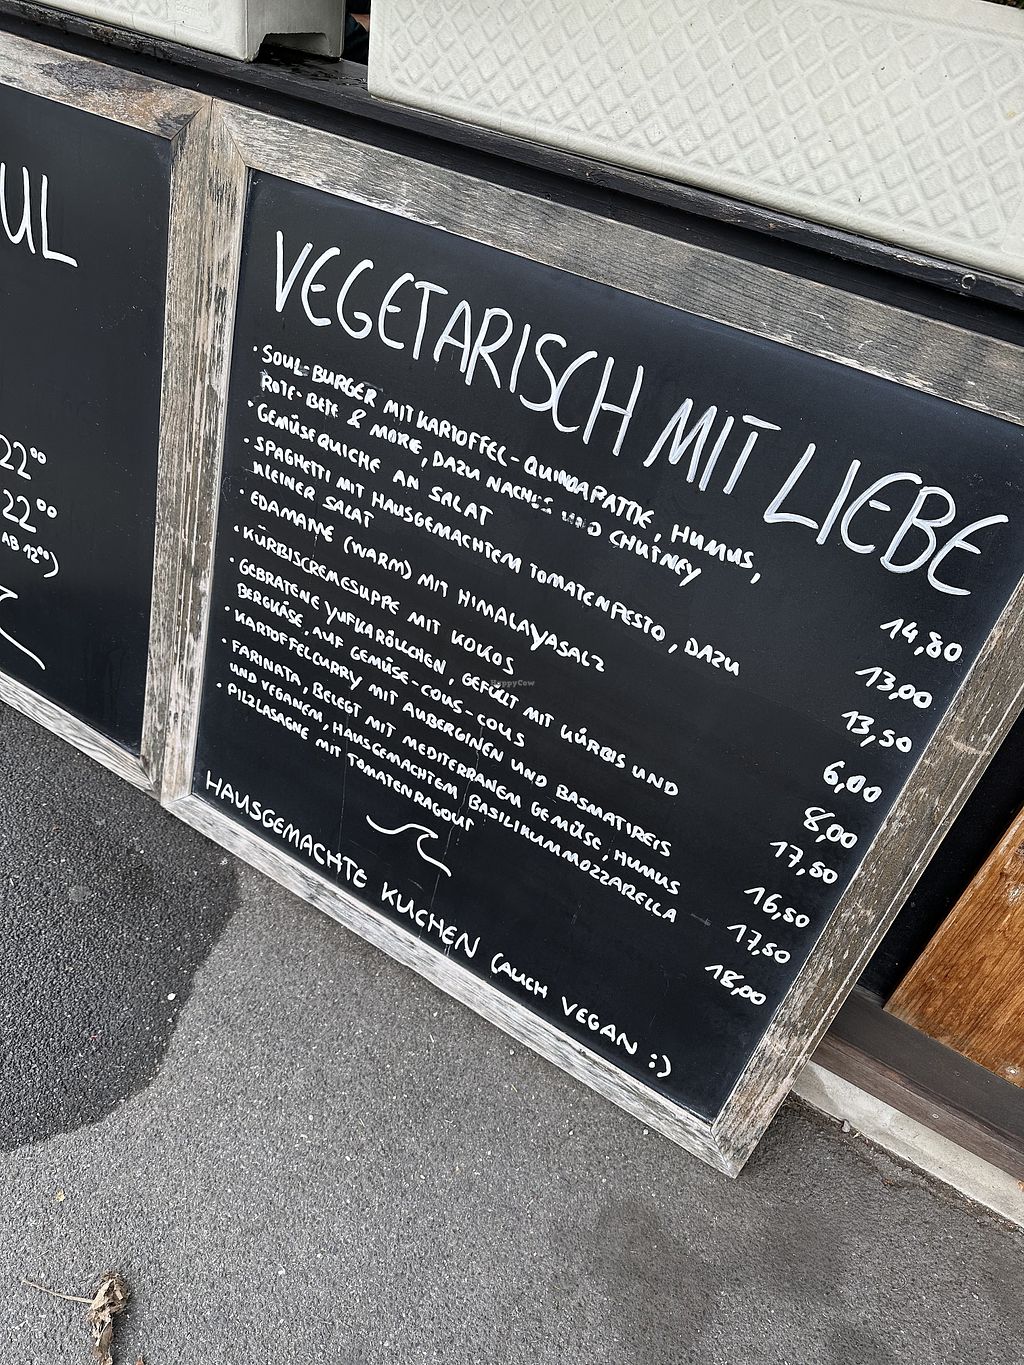 UL
22⁰⁰
22⁰⁰
AB 12⁰⁰)
VEGETARISCH MIT LIEBE
• SOUL-BURGER MIT KARTOFFEL-QUINOAPATTIE, HUMUS,
ROTE-BETE & MORE, DAZU NACHOS UND CHUTNEY 14,80
• GEMÜSEQUICHE AN SALAT 13,00
• SPAGHETTI MIT HAUSGEMACHTEM TOMATENPESTO, DAZU
KLEINER SALAT 13,50
• EDAMAME (WARM) MIT HIMALAYASALZ 6,00
• KÜRBISCREMESUPPE MIT KOKOS 8,00
• GEBRATENE YUFKARÖLLCHEN, GEFÜLLT MIT KÜRBIS UND
BERGKÄSE, AUF GEMÜSE-COUS-COUS 17,50
• KARTOFFELCURRY MIT AUBERGINEN UND BASMATIREIS 16,50
• FARINATA, BELEGT MIT MEDITERRANEM GEMÜSE, HUMUS
UND VEGANEM, HAUSGEMACHTEM BASILIKUMMOZZARELLA 17,50
• PILZLASAGNE MIT TOMATENRAGOUT 18,00
HAUSGEMACHTE KUCHEN (AUCH VEGAN :)
HappyCow